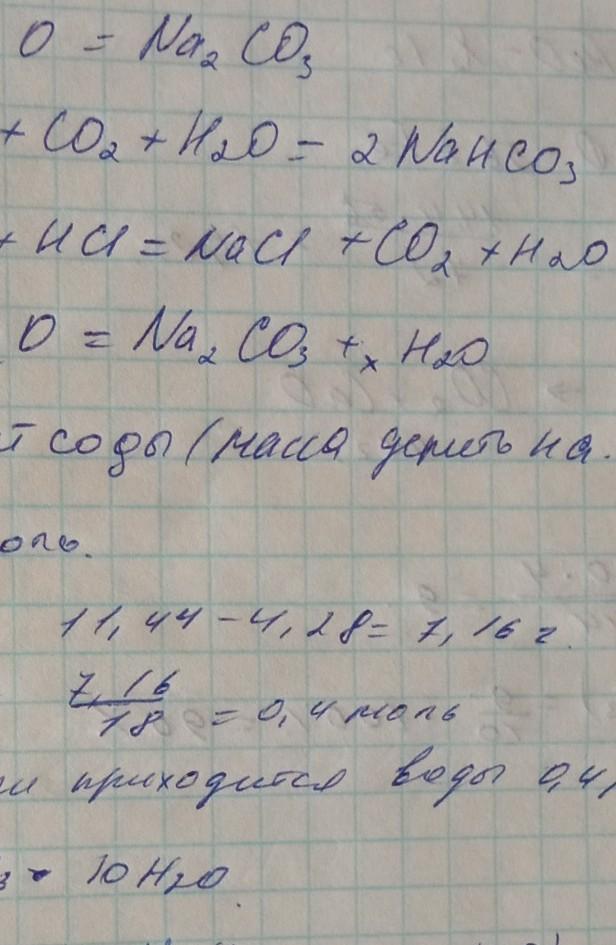 O = Na₂CO₃
+ CO₂ + H₂O = 2NaHCO₃
+ HCl = NaCl + CO₂ + H₂O
O = Na₂CO₃ + x H₂O
соды (масса делить на.
оль.
11,44 - 4,28 = 7,16 г.
7,16
18 = 0,4 моль
и приходится воды 0,4
3 · 10H₂O